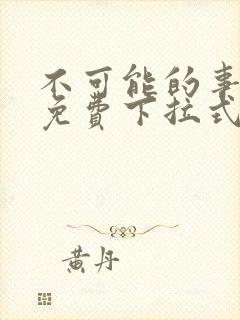 不可能的事
免费下拉式
黄丹